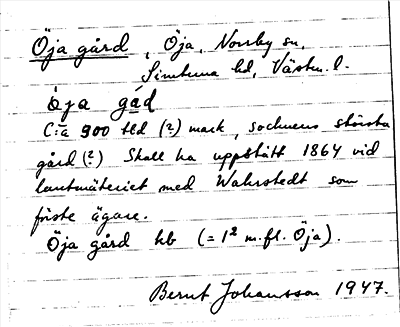 Öja gård, Öja, Norrby sn,
Simtuna hd, Västm. l.
öja gåd
C:a 900 tld (?) mark, socknens största
gård (?) Skall ha uppstått 1864 vid
lantmäteriet med Wahrstedt som
förste ägare.
Öja gård kb (= 1² m.fl. Öja).
Bernt Johansson 1947.